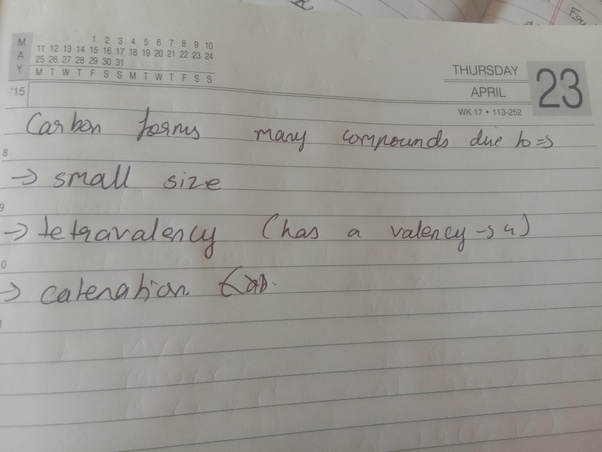 M A Y
1 2 3 4 5 6 7 8 9 10
11 12 13 14 15 16 17 18 19 20 21 22 23 24
25 26 27 28 29 30 31
M T W T F S S M T W T F S S
'15
THURSDAY
APRIL
23
WK-17 • 113-252
Carbon forms many compounds due to ⇒
8
→ small size
9
→ tetravalency (has a valency → 4)
0
→ catenation